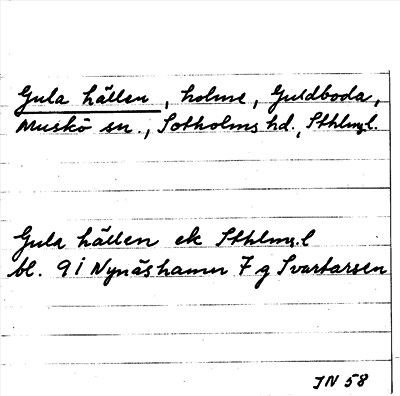 Gula hällen, holme, Guldboda,
Muskö sn., Sotholms hd., Sthlms l.
Gula hällen ek Sthlms l
bl. 9 i Nynäshamn 7 g Svartarsen
JN 58